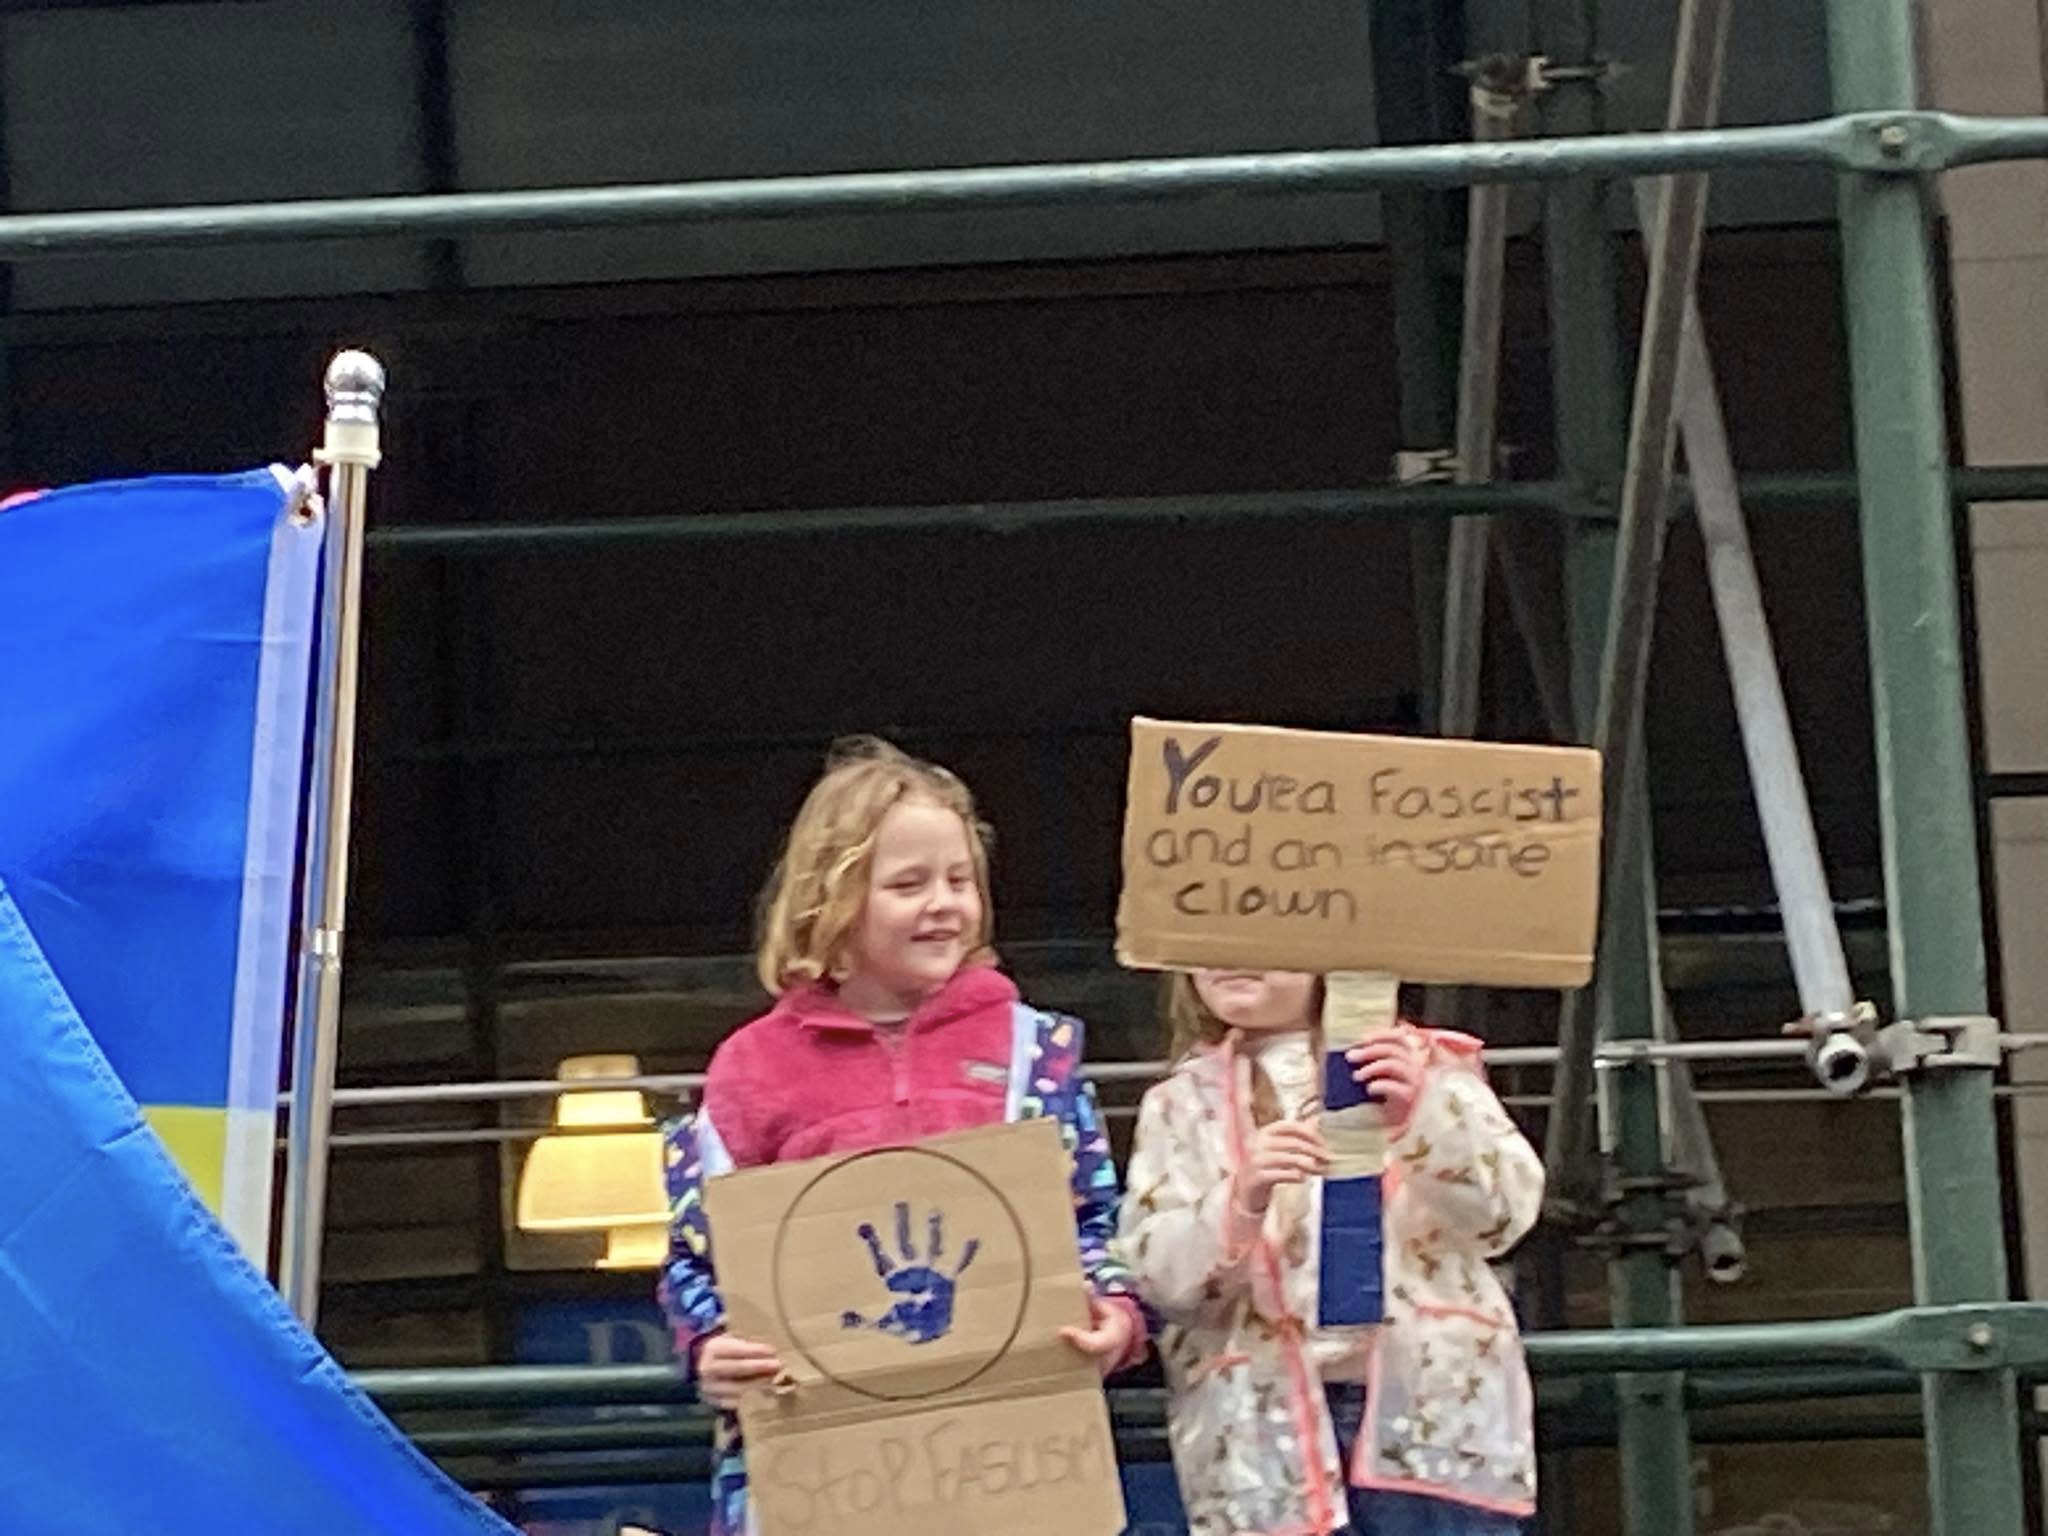 Youre a Fascist
and an insane
clown
StoP FASCISM